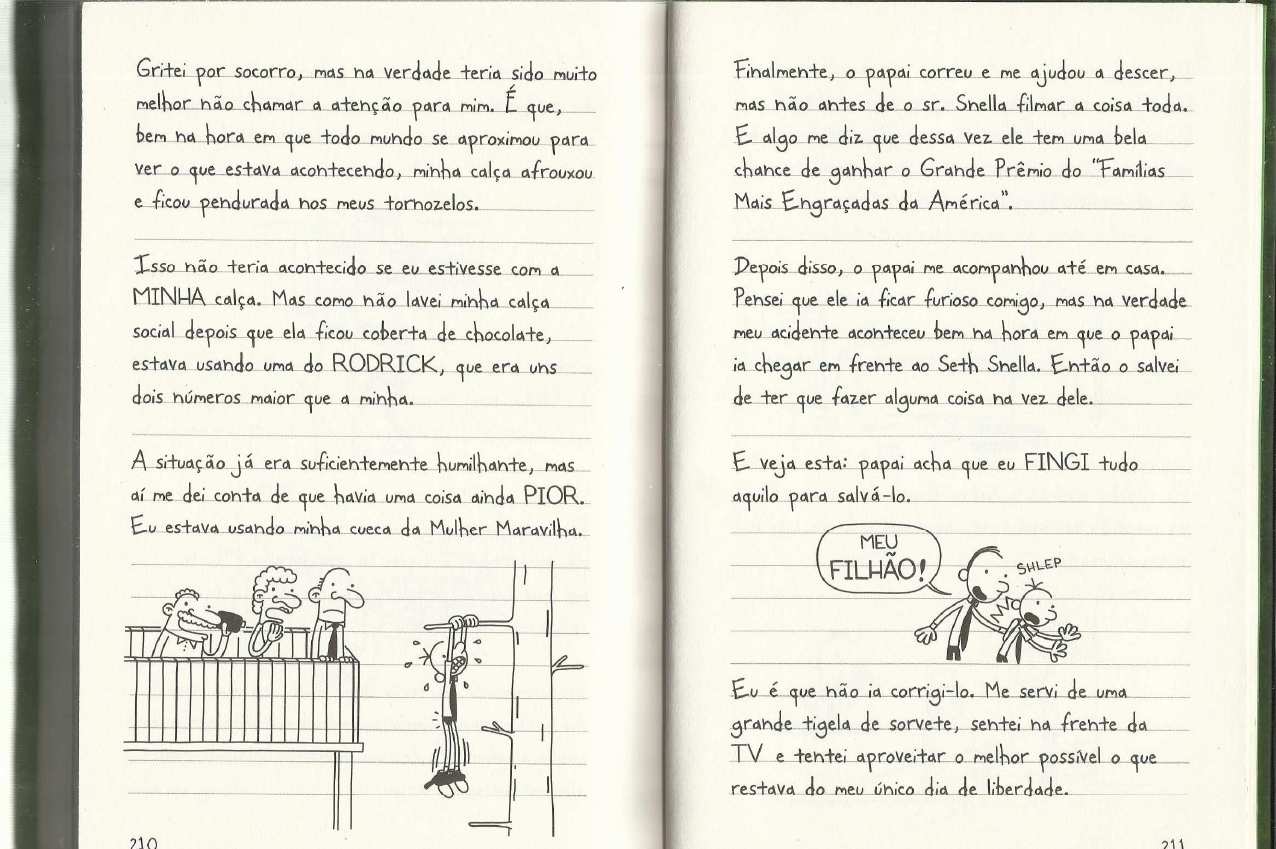 Gritei por socorro, mas na verdade teria sido muito
melhor não chamar a atenção para mim. É que,
bem na hora em que todo mundo se aproximou para
ver o que estava acontecendo, minha calça afrouxou
e ficou pendurada nos meus tornozelos.
Isso não teria acontecido se eu estivesse com a
MINHA calça. Mas como não lavei minha calça
social depois que ela ficou coberta de chocolate,
estava usando uma do RODRICK, que era uns
dois números maior que a minha.
A situação já era suficientemente humilhante, mas
aí me dei conta de que havia uma coisa ainda PIOR.
Eu estava usando minha cueca da Mulher Maravilha.
210
Finalmente, o papai correu e me ajudou a descer,
mas não antes de o sr. Snella filmar a coisa toda.
E algo me diz que dessa vez ele tem uma bela
chance de ganhar o Grande Prêmio do "Famílias
Mais Engraçadas da América".
Depois disso, o papai me acompanhou até em casa.
Pensei que ele ia ficar furioso comigo, mas na verdade
meu acidente aconteceu bem na hora em que o papai
ia chegar em frente ao Seth Snella. Então o salvei
de ter que fazer alguma coisa na vez dele.
E veja esta: papai acha que eu FINGI tudo
aquilo para salvá-lo.
MEU
FILHÃO!
SHLEP
Eu é que não ia corrigi-lo. Me servi de uma
grande tigela de sorvete, sentei na frente da
TV e tentei aproveitar o melhor possível o que
restava do meu único dia de liberdade.
211